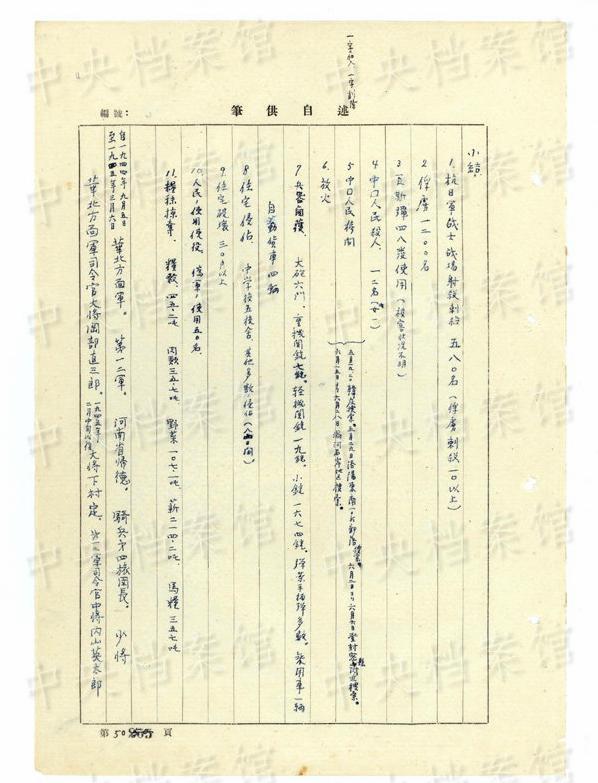 一字加入 一字削除
編號:
筆供自述
小結
1. 抗日軍战士战場射殺刺殺 五八〇名(俘虜刺殺一〇以上)
2. 俘虜 一二〇〇名
3. 瓦斯彈四八發使用(被害状况不明)
4. 中口人民殺人. 一二名(女一)
5. 中口人民拷問
6. 放火
7. 兵器鹵獲. 大砲六门. 重機関銃七銃. 轻機関銃一九銃. 小銃一六七四銃. 彈薬手榴彈多数. 乗用車一輌
自動貨車四輌
8. 住宅侵佔. 中学校五校舎. 其他多数侵佔
9. 住宅破壊 三〇户以上
10. 人民, 使用使役
11. 糧秣掠奪. 糧穀. 四五.二吨 肉類三五.七吨 野菜一〇七.一吨 薪二一四.二吨. 馬糧 三五七吨
自一九四四年九月五日
至一九四五年三月六日
華北方面軍. 第一二軍. 河南省帰德. 騎兵第四旅団長. 少将
華北方面軍司令官大将岡部直三郎. 一九四五年 大将下村定. 第一二軍司令官中将内山英太郎
第50頁
中央档案馆